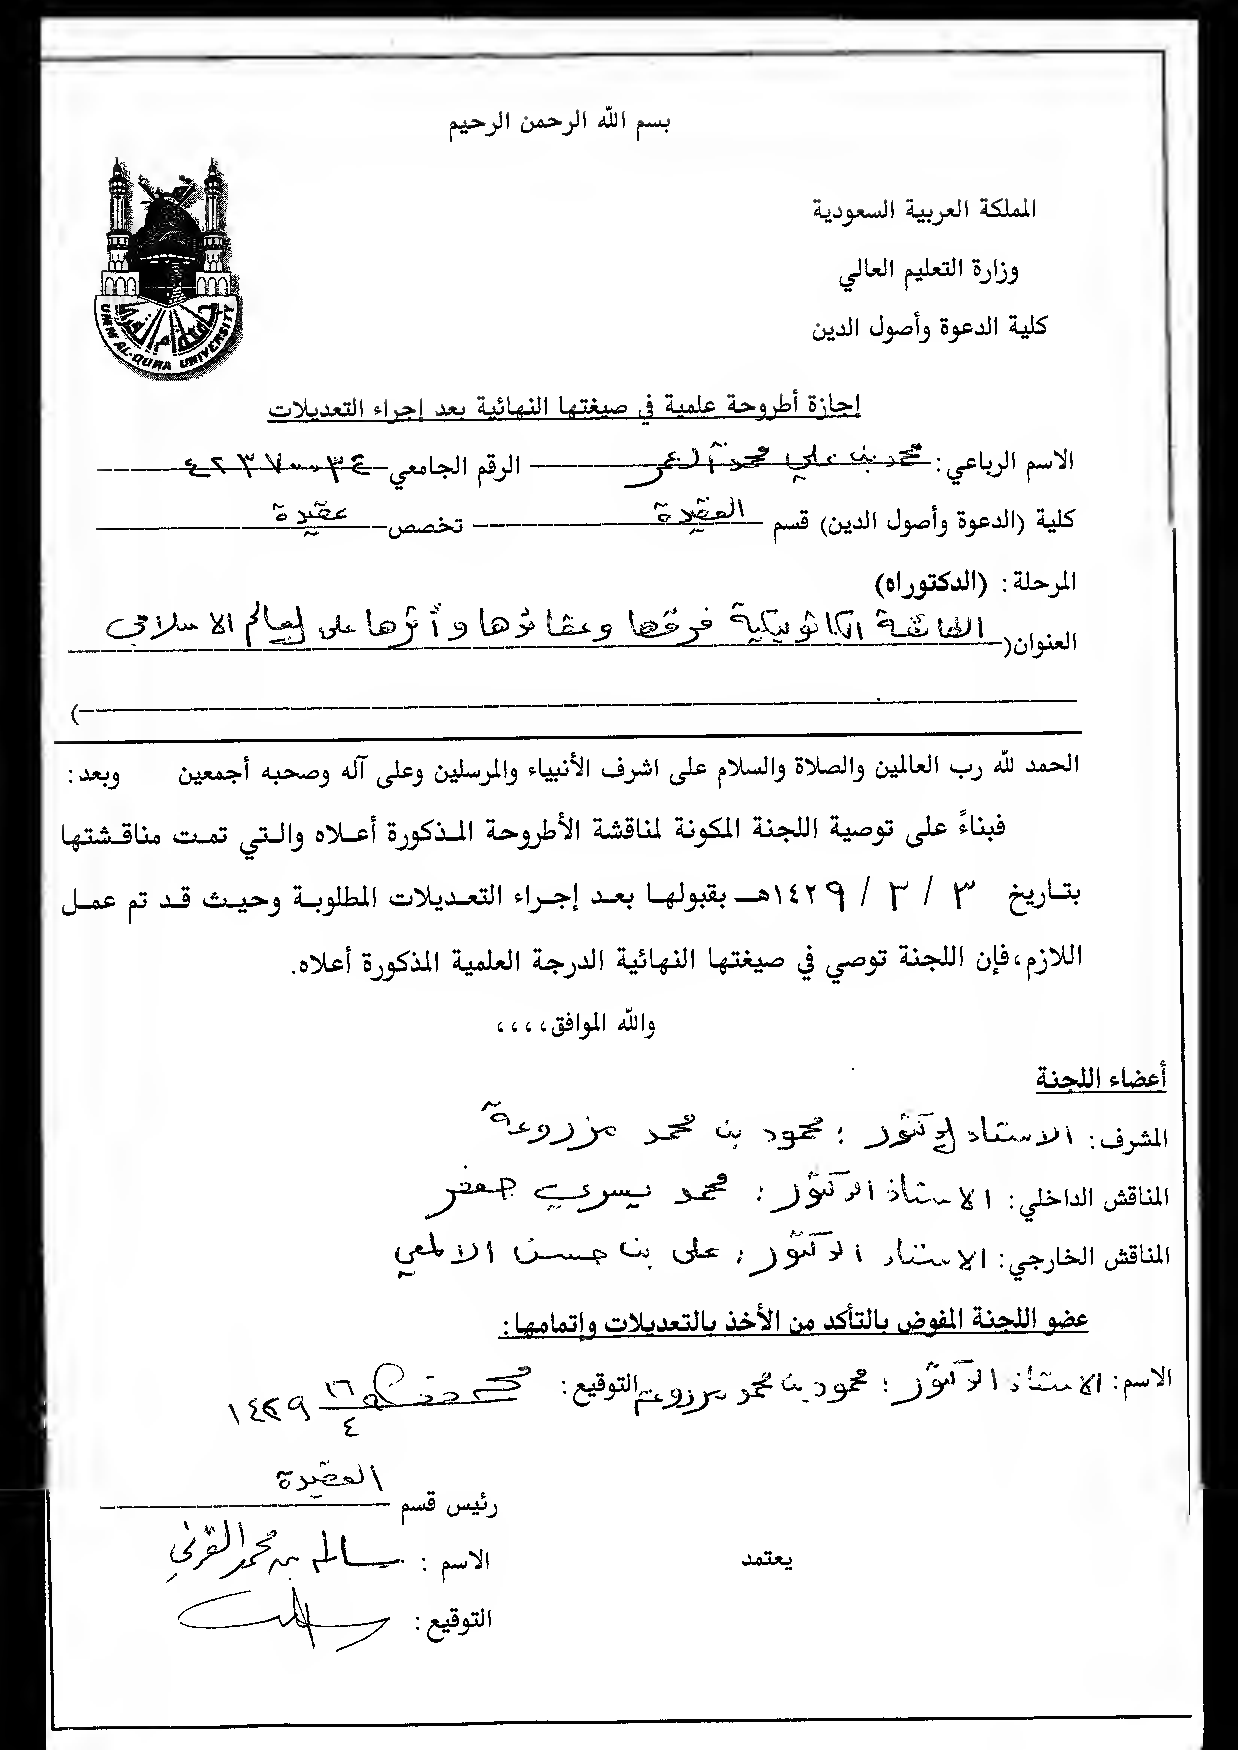 بسم الله الرحمن الرحيم
المملكة العربية السعودية
وزارة التعليم العالي
كلية الدعوة وأصول الدين
جامعة أم القرى
UMM AL-QURA UNIVERSITY
إجازة أطروحة علمية في صيغتها النهائية بعد إجراء التعديلات
الاسم الرباعي: محمد بن علي محمد آل عمر الرقم الجامعي ٤٢٣٧٠٠٣٤
كلية (الدعوة وأصول الدين) قسم العقيدة تخصص عقيدة
المرحلة: (الدكتوراه)
العنوان( الطائفة الكاثوليكية فرقها وعقائدها وأثرها على العالم الاسلامي
)
الحمد لله رب العالمين والصلاة والسلام على اشرف الأنبياء والمرسلين وعلى آله وصحبه أجمعين وبعد:
فبناءً على توصية اللجنة المكونة لمناقشة الأطروحة المذكورة أعلاه والتي تمت مناقشتها
بتاريخ ٣ / ٣ / ١٤٢٩هـ بقبولها بعد إجراء التعديلات المطلوبة وحيث قد تم عمل
اللازم، فإن اللجنة توصي في صيغتها النهائية الدرجة العلمية المذكورة أعلاه.
والله الموافق،،،،
أعضاء اللجنة
المشرف: الاستاذ الدكتور : محمود بن محمد مزروعة
المناقش الداخلي: الاستاذ الدكتور : محمد يسري جعفر
المناقش الخارجي: الاستاذ الدكتور : على بن حسن الالمعي
عضو اللجنة المفوض بالتأكد من الأخذ بالتعديلات وإتمامها:
الاسم: الاستاذ الدكتور : محمود بن محمد مزروعة التوقيع: ١٦/٤ ١٤٢٩
رئيس قسم العقيدة
يعتمد
الاسم : سالم بن محمد القرني
التوقيع :